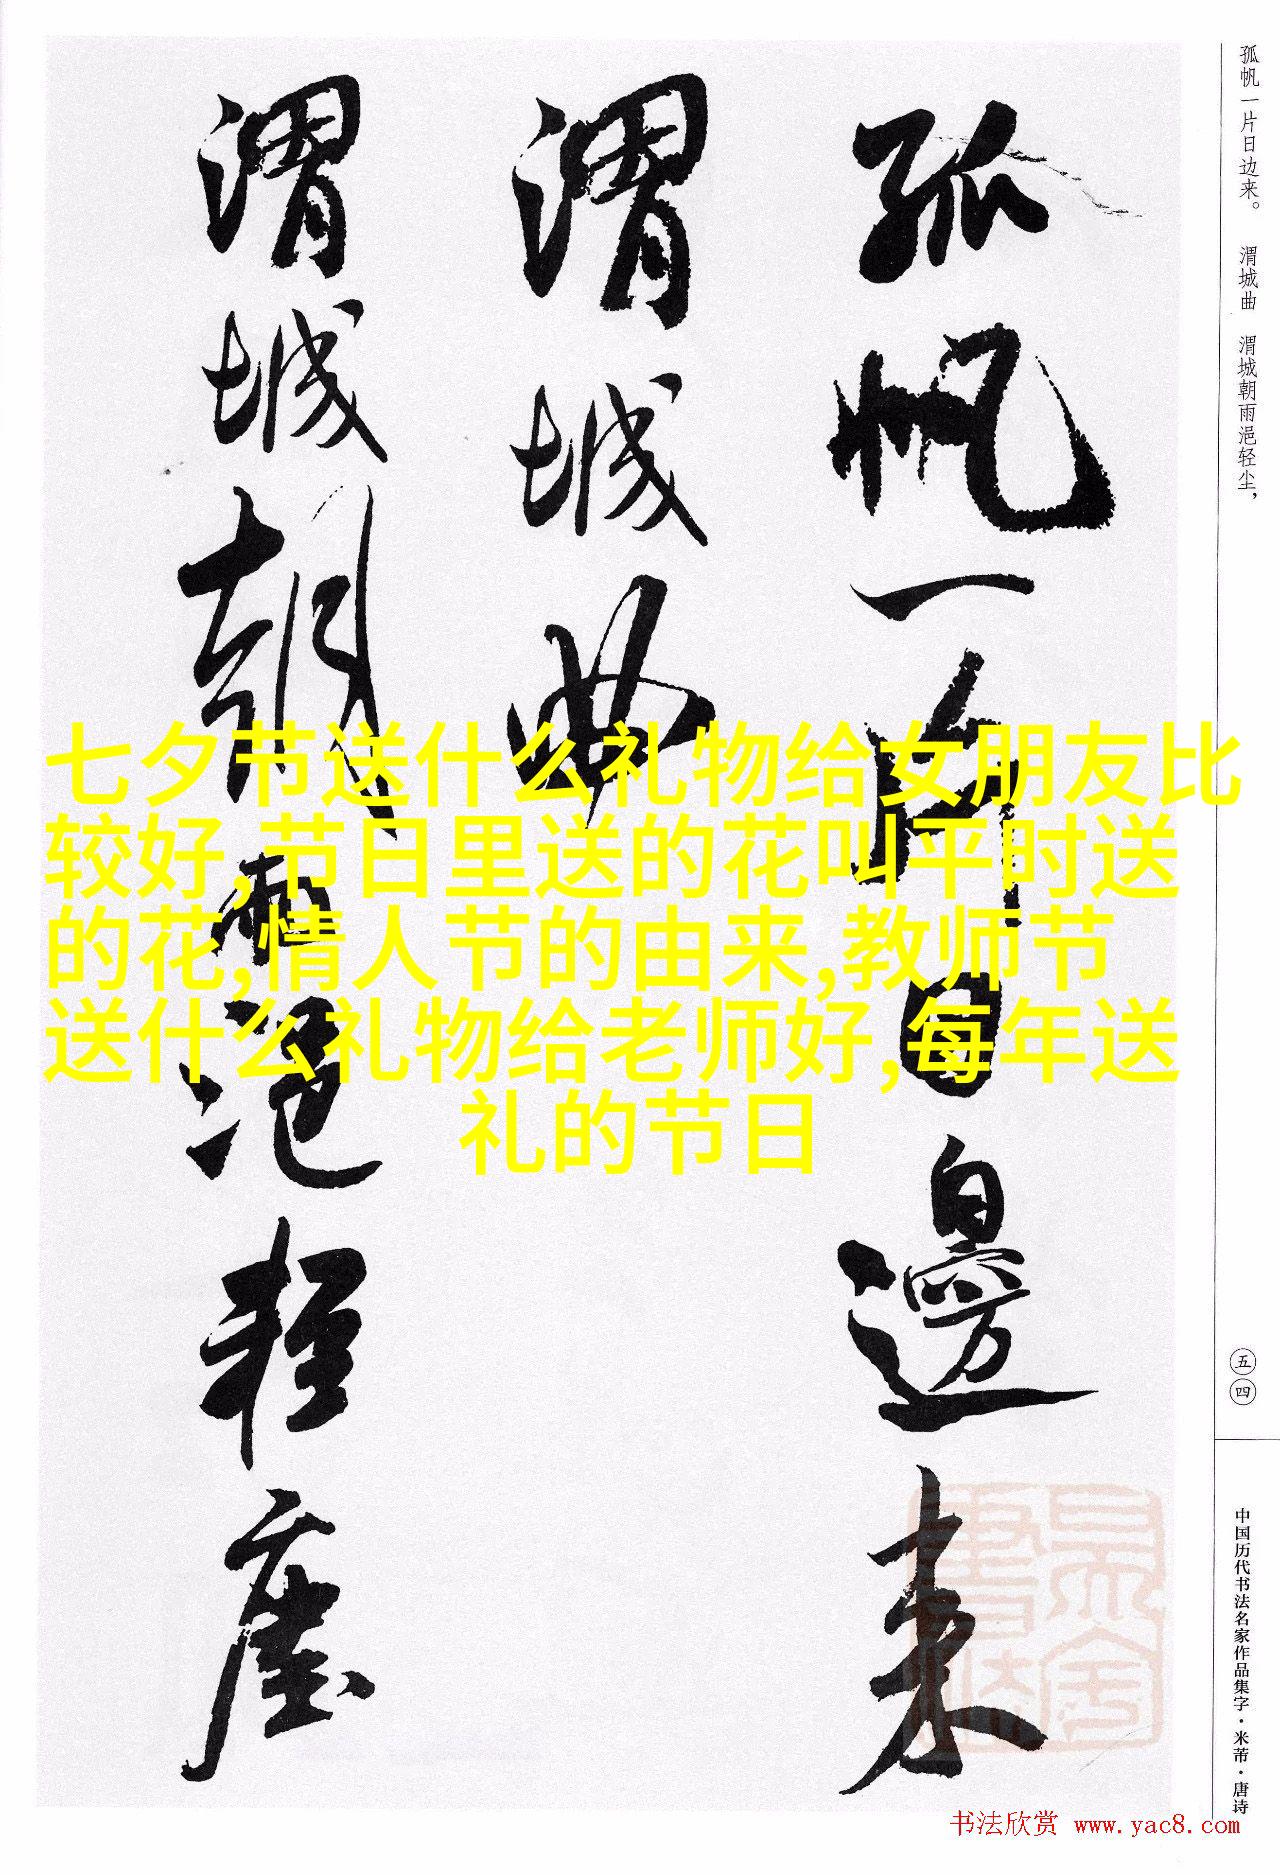 孤帆一片日邊来
渭城曲
渭城朝雨浥轻塵
孤帆一片日边来。 渭城曲 渭城朝雨浥轻尘，
五四
中国历代书法名家作品集字·米芾·唐诗
七夕节送什么礼物给女朋友比
较好,节日里送的花叫平时送
的花,情人节的由来,教师节
送什么礼物给老师好,每年送
礼的节日
书法欣赏 www.yac8.com